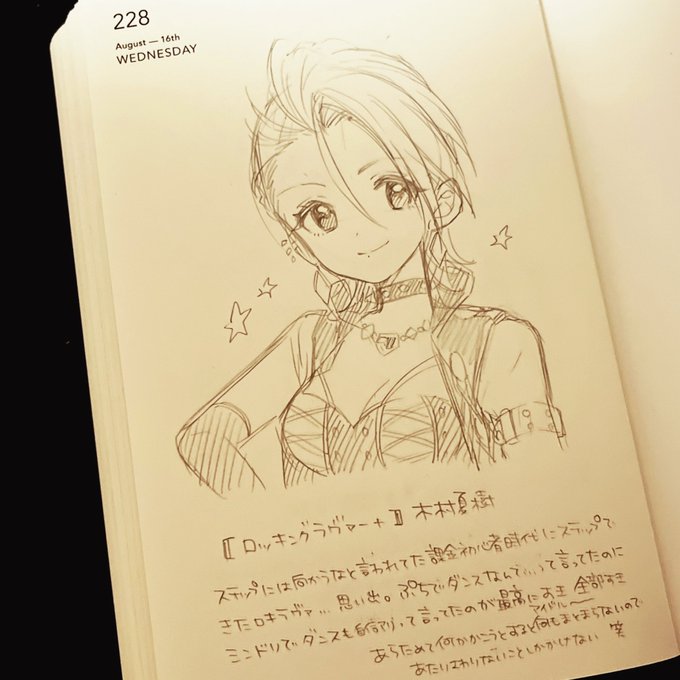 228
August — 16th
WEDNESDAY
【ロッキングラヴァー+】木村夏樹
ステップには向かうなと言われてた課金初心者時代にステップで
きたロキラヴァ…思い出。ぷちでダンスなんて…って言ってたのに
ミンドリでダンスも自信アリって言ってたのが最高にお王 全部お王
アイドル
あらためて何かかこうとすると何もまとまらないので
あたりさわりないことしかかけない 笑